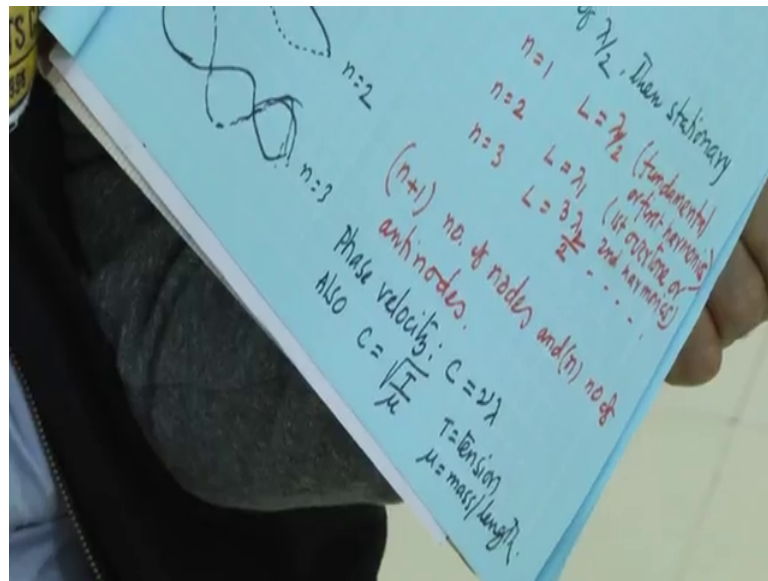 of λ/2, Then stationary
n=1 L=λ/2 (fundamental or first harmonic)
n=2 L=λ, (1st overtone or 2nd harmonics)
n=3 L=3λ/2 - - - - .
n=2
n=3
(n+1) no. of nodes and (n) no of
antinodes.
Phase velocity: C=νλ
Also C=√T/μ T=tension
μ=mass/length.